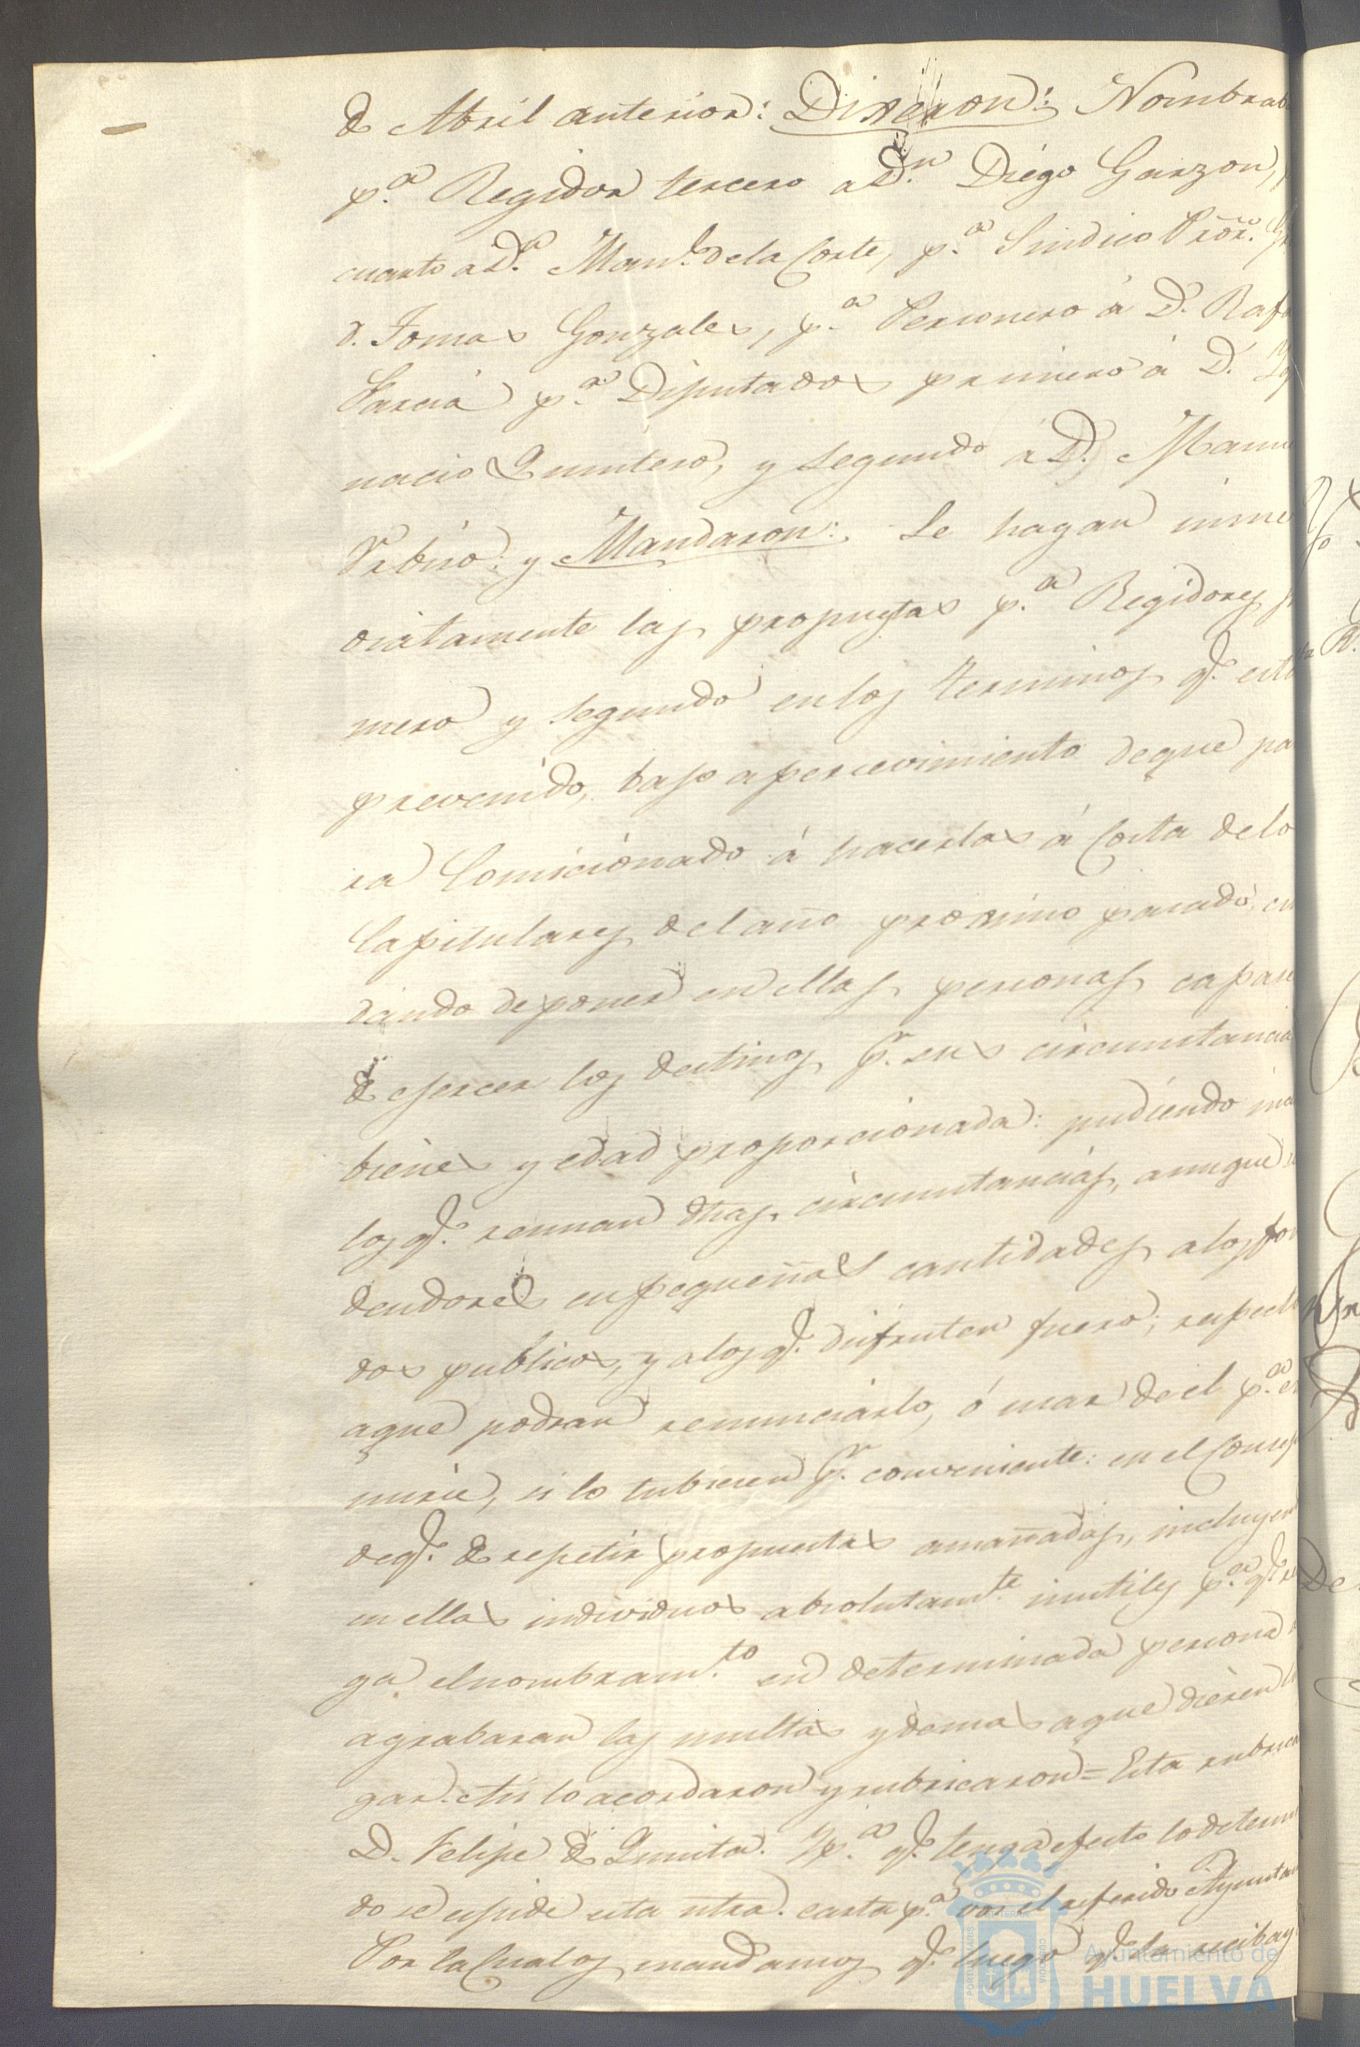 de Abril anterior: Dixeron: Nombrab
p.ª Regidor tercero a D.n Diego Garzon,
cuarto a D.n Man.l de la Corte, p.ª Sindico Prõr.
D. Tomas Gonzales, p.ª Personero á D. Rafa
Garcia p.ª Diputados primero á D. Yg
nacio Quintero, y segundo á D. Manu
y Mandaron: Se hagan inme
diatamente las propuestas p.ª Regidores pri
mero y segundo en los terminos q.e esta
prevenido, bajo apercevimiento de que pa
rá Comicionado á hacerlas á costa de lo
Capitulares del año proximo pasado, cu
dando de poner en ellas, personas capaces
de ejercer los destinos p.r sus circunstancias
bienes y edad proporcionada: pudiendo inc
los q.e reunan dhas circunstancias, aunque se
deudores en pequeñas cantidades a los fon
dos publicos, y a los q.e disfruten fuero; respecto
a que podran renunciarlo, ó usar de el p.ª ex
mirse, si lo tubieren p.r conveniente: en el Concep
de q.e de repetir propuestas amañadas, incluyen
en ellas individuos absolutam.te inutiles p.ª q.e
ga el nombram.to en determinada persona
agrabaran las multas y demas a que dieren lu
gar. Asi lo acordaron y rubricaron = Esta rubrica
D. Felipe de Quinta. Y p.ª q.e tenga efecto lo determi
do se espide esta ntra. carta p.ª vos el referido Ayunta
Por la cual os mandamos q.e luego q.e la recibays
Ayuntamiento de
HUELVA